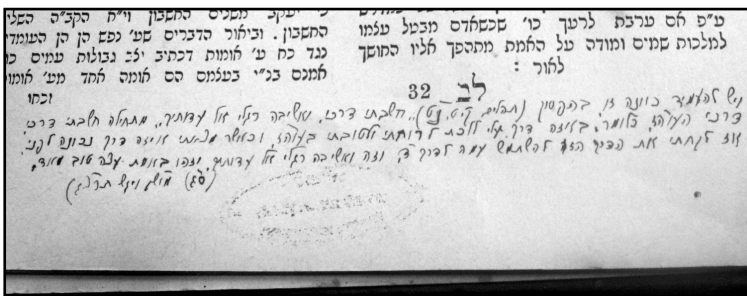 ט"פ אם ערבת לרעך כו' שכשאדם מבטל עצמו
למלכות שמים ומודה על האמת מתהפך אליו החושך
לאור :
יעקב משנים החשבון וי"ח הקב"ה השלי
החשבון . וביאור הדברים שע' נפש הן הן העומדי
נגד כח ע' אומות דכתיב יצב גבולות עמים כו
אמנם בנ"י בעצמם הם אומה אחד מע' אומו
וכחו
לב 32
ויש להעמיד כוונה זו בהפסוק (תהלים, קי"ט, נ"ט),, חשבתי דרכי, ואשיבה רגלי אל עדותיך,, מתחילה חשבתי דרכי
דרכי העוה"ז, כלומר, באיזה דרך עלי ללכת לרווחתי ולטובתי בעוה"ז, וכאשר מצאתי איזה דרך נכונה לפני
אז לקחתי את הדרך הזה להשתמש עמה לדרך ד', וזה ואשיבה רגלי אל עדותיך, וזהו באמת עצה טוב מאוד.
ויגש